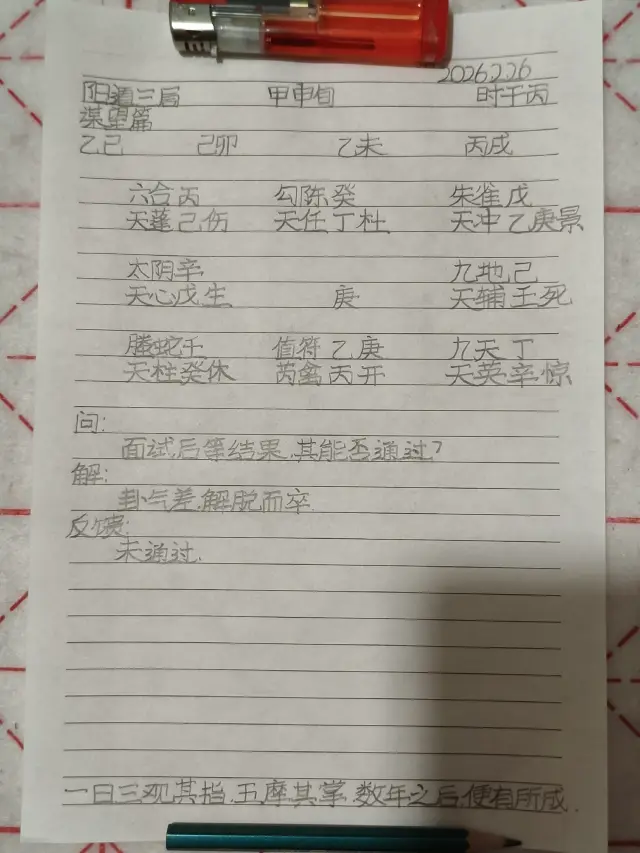 2026.2.26
阳遁三局 甲申旬 时干丙
谋望篇
乙巳 己卯 乙未 丙戌
六合丙 勾陈癸 朱雀戊
天蓬己伤 天任丁杜 天冲乙庚景
太阴辛 九地己
天心戊生 庚 天辅壬死
螣蛇壬 值符乙庚 九天丁
天柱癸休 芮禽丙开 天英辛惊
问:
面试后等结果,其能否通过?
解:
卦气差,解脱而卒.
反馈:
未通过.
一日三观其指,五摩其掌,数年之后,便有所成.